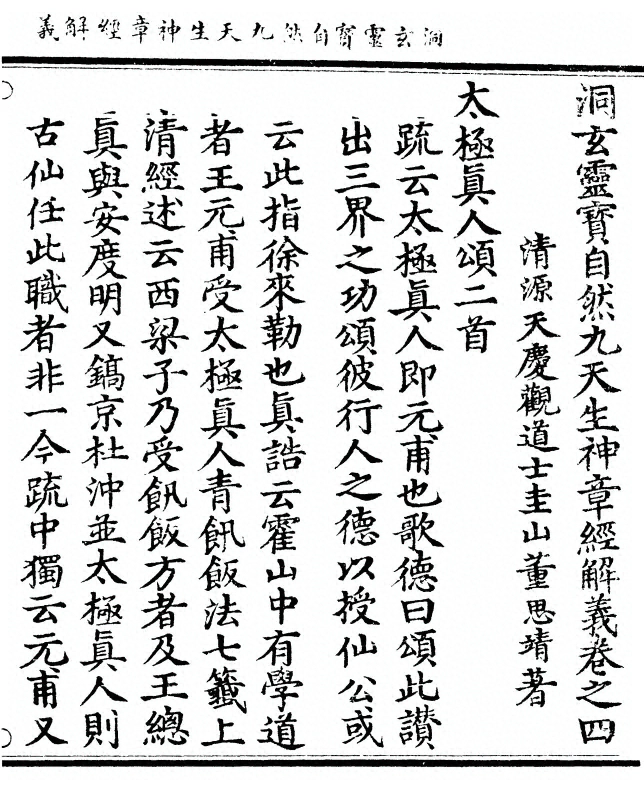 洞玄靈寳自然九天生神章經解義
洞玄靈寳自然九天生神章經解義卷之四
清源天慶觀道士圭山董思靖著
太極眞人頌二首
䟽云太極眞人即元甫也歌德曰頌此讃
出三界之功頌彼行人之德以授仙公或
云此指徐來勒也眞誥云霍山中有學道
者王元甫受太極眞人青飢飯法七籤上
清經述云西梁子乃受飢飯方者及王總
眞與安度明又鎬京杜沖並太極眞人則
古仙任此職者非一今䟽中獨云元甫又